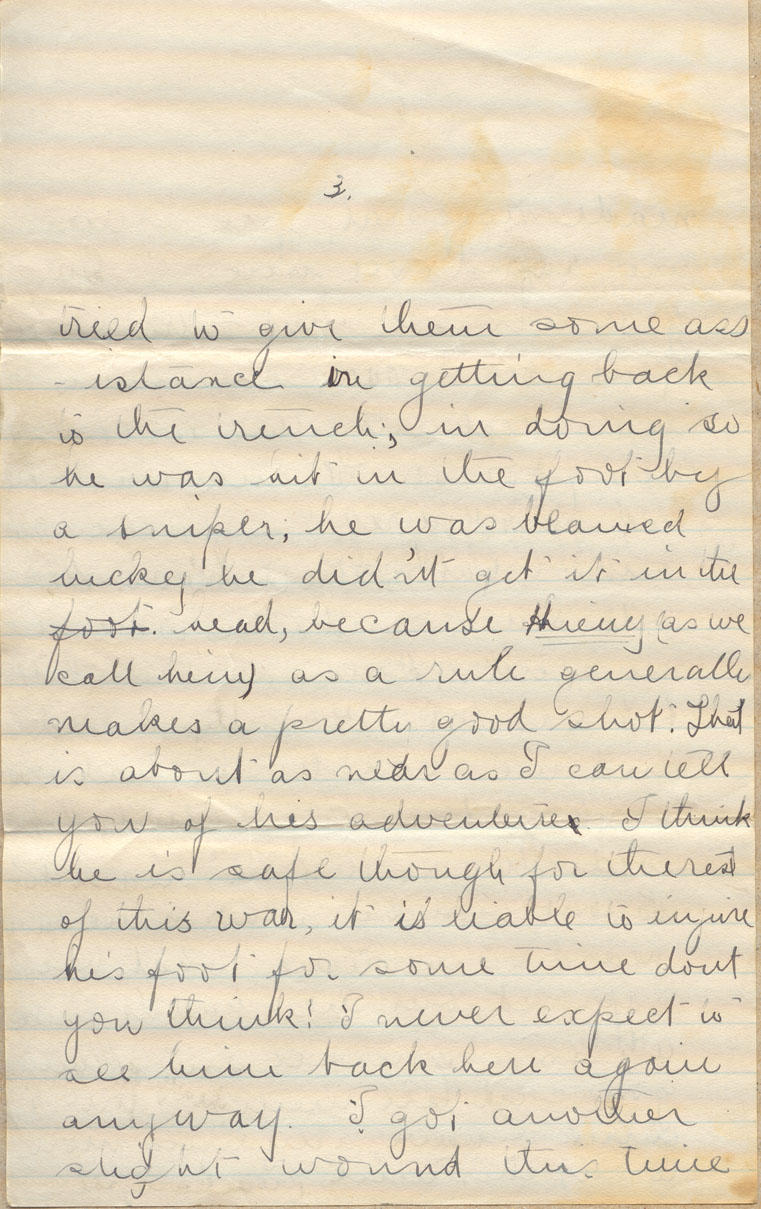 3.
tried to give them some ass
- istance in getting back
to the trench; in doing so
he was hit in the foot by
a sniper, he was blamed
lucky he did'nt get it in the
foot. head, because (as we
call him) as a rule generally
makes a pretty good shot. That
is about as near as I can tell
you of his adventures. I think
he is safe though for the rest
of this war, it is liable to injure
his foot for some time dont
you think! I never expect to
see him back here again
anyway. I got another
slight wound this time